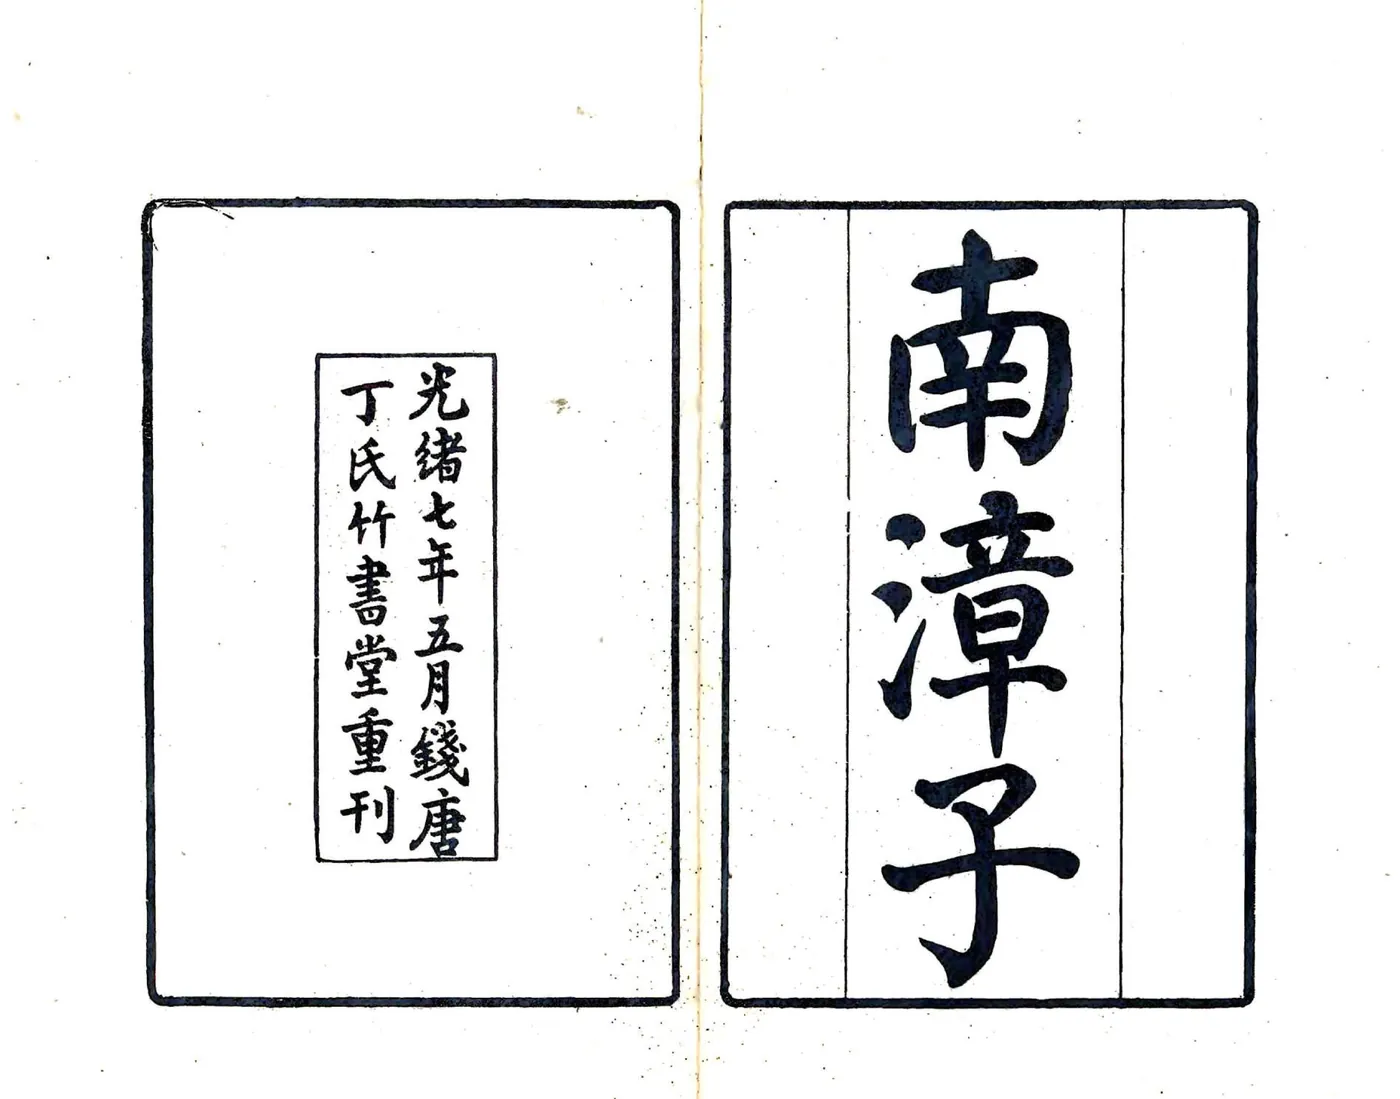 南漳子
光緒七年五月錢唐
丁氏竹書堂重刊